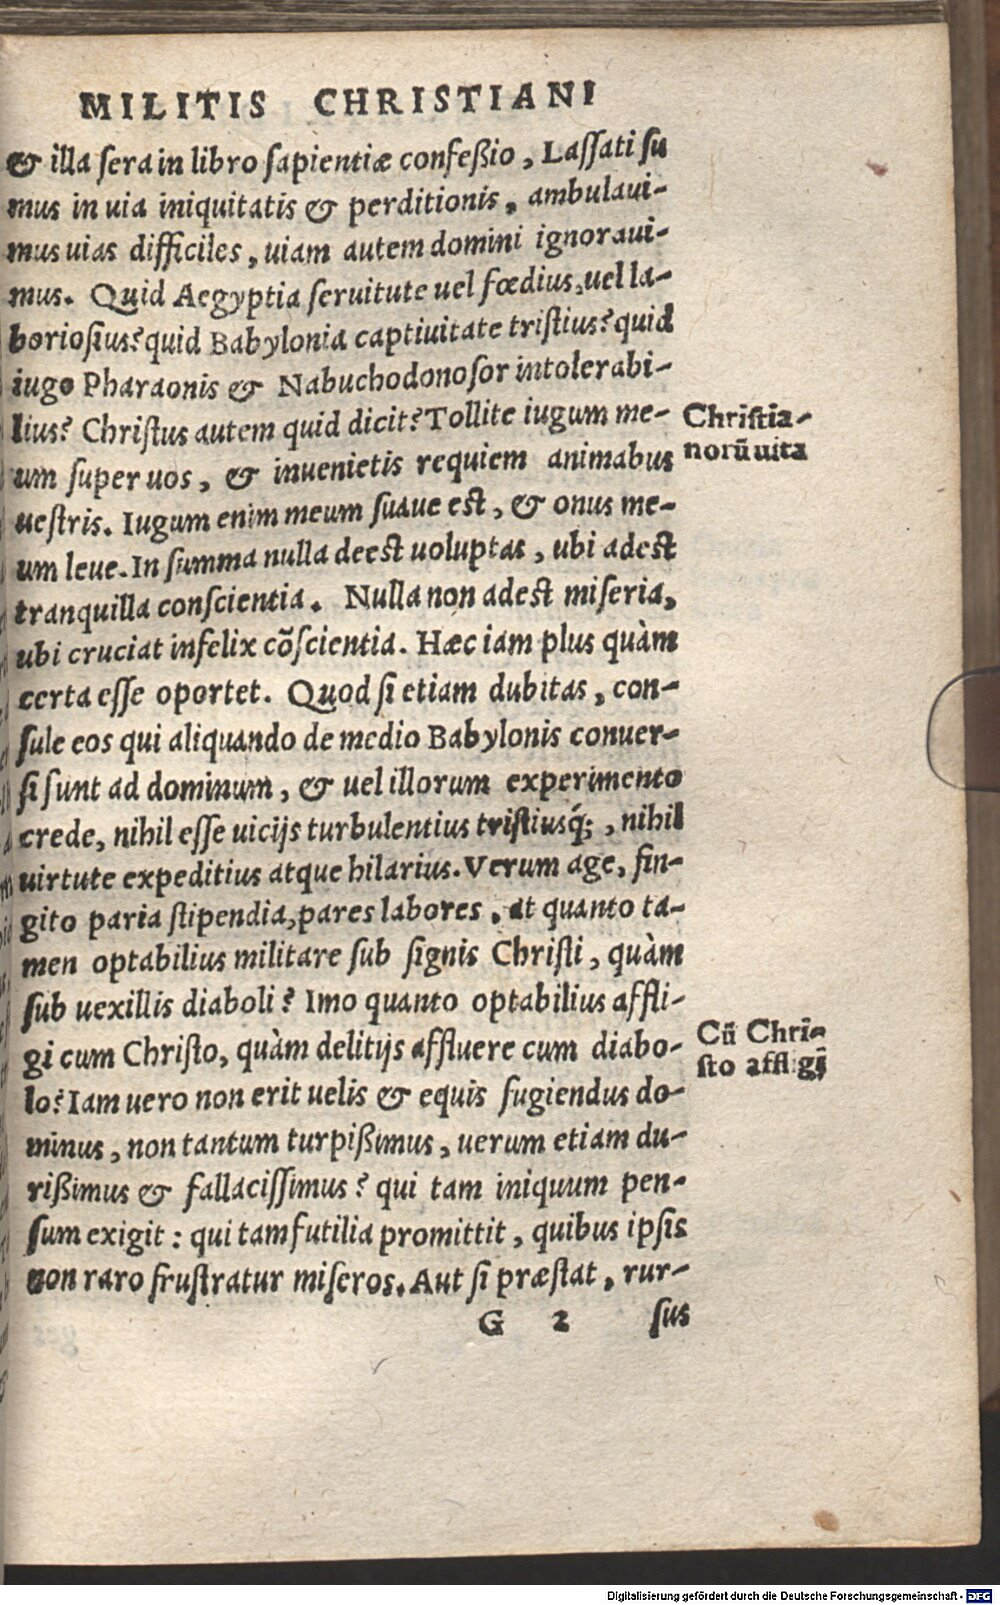 MILITIS CHRISTIANI
& illa sera in libro sapientiæ confeßio, Lassati su
mus in uia iniquitatis & perditionis, ambulaui-
mus uias difficiles, uiam autem domini ignoraui-
mus. Quid Aegyptia seruitute uel fœdius, uel la-
boriosius? quid Babylonia captiuitate tristius? quid
iugo Pharaonis & Nabuchodonosor intolerabi-
lius? Christus autem quid dicit? Tollite iugum me-
um super uos, & inuenietis requiem animabus
uestris. Iugum enim meum suaue est, & onus me-
um leue. In summa nulla deest uoluptas, ubi adest
tranquilla conscientia. Nulla non adest miseria,
ubi cruciat infelix cõscientia. Hæc iam plus quàm
certa esse oportet. Quod si etiam dubitas, con-
sule eos qui aliquando de medio Babylonis conuer-
si sunt ad dominum, & uel illorum experimento
crede, nihil esse uicijs turbulentius tristiusq́;, nihil
uirtute expeditius atque hilarius. Verum age, fin-
gito paria stipendia, pares labores, at quanto ta-
men optabilius militare sub signis Christi, quàm
sub uexillis diaboli? Imo quanto optabilius affli-
gi cum Christo, quàm delitijs affluere cum diabo-
lo? Iam uero non erit uelis & equis fugiendus do-
minus, non tantum turpißimus, uerum etiam du-
rißimus & fallacissimus? qui tam iniquum pen-
sum exigit: qui tam futilia promittit, quibus ipsis
non raro frustratur miseros. Aut si præstat, rur-
G 2 sus
Christia-
norũ uita
Cũ Chri-
sto affligi
Digitalisierung gefördert durch die Deutsche Forschungsgemeinschaft - DFG